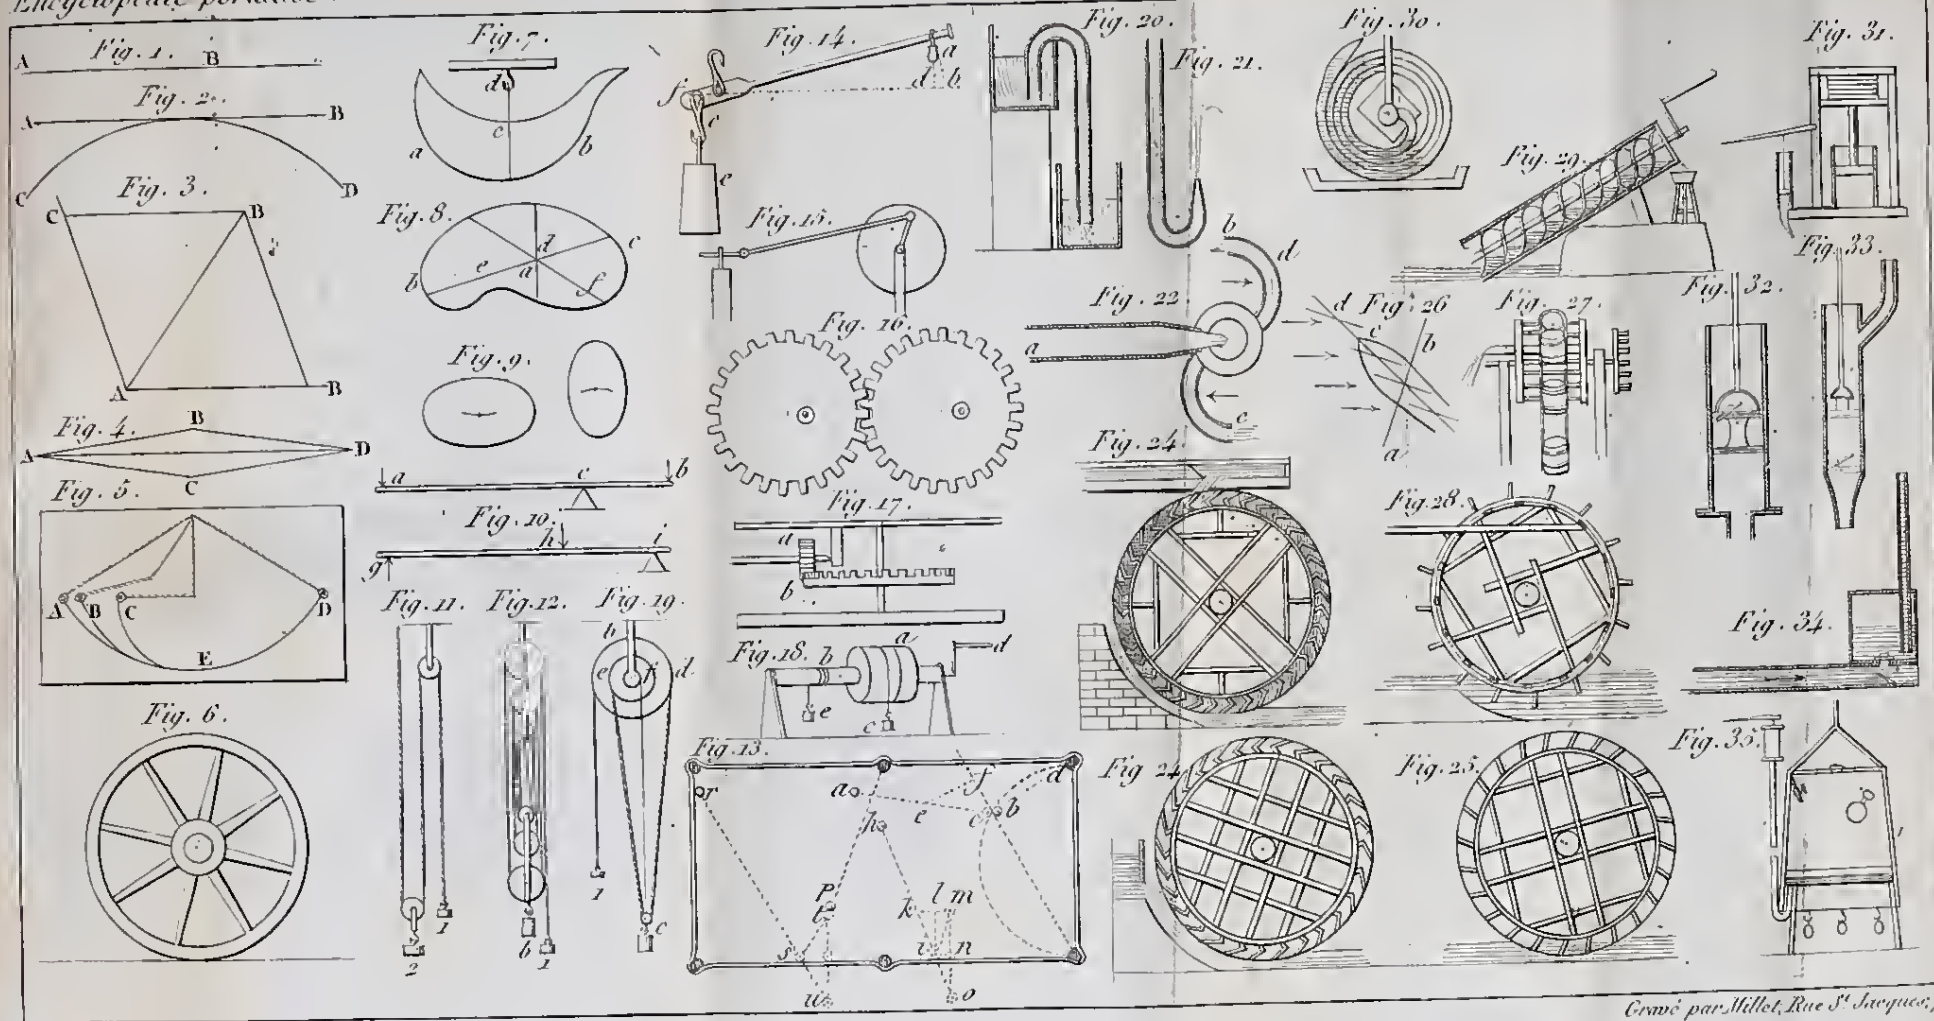 Encyclopédie portative
Fig. 1.
A B
Fig. 2.
A B
C D
Fig. 3.
C B
A B
Fig. 4.
B
A D
C
Fig. 5.
A B C D
E
Fig. 6.
Fig. 7.
d
c
a b
Fig. 8.
d c
e
b a f
Fig. 9.
a c b
Fig. 10.
h i
g
Fig. 11.
1
2
Fig. 12.
b 1
Fig. 19.
b
e f d
1 c
Fig. 14.
a
f d b
c
e
Fig. 15.
Fig. 16.
Fig. 17.
a
b
Fig. 18.
a
b d
e c
Fig. 13.
r a f d
e c b
h
p
t k l m
s i n
u o
Fig. 20.
Fig. 21.
Fig. 22
b
d
a
c
Fig. 24.
Fig. 26
d
c
b
a
Fig. 27.
Fig. 28.
Fig. 24
Fig. 25.
Fig. 29.
Fig. 30.
Fig. 31.
Fig. 32.
Fig. 33.
Fig. 34.
Fig. 35.
Gravé par Millet, Rue St. Jacques,